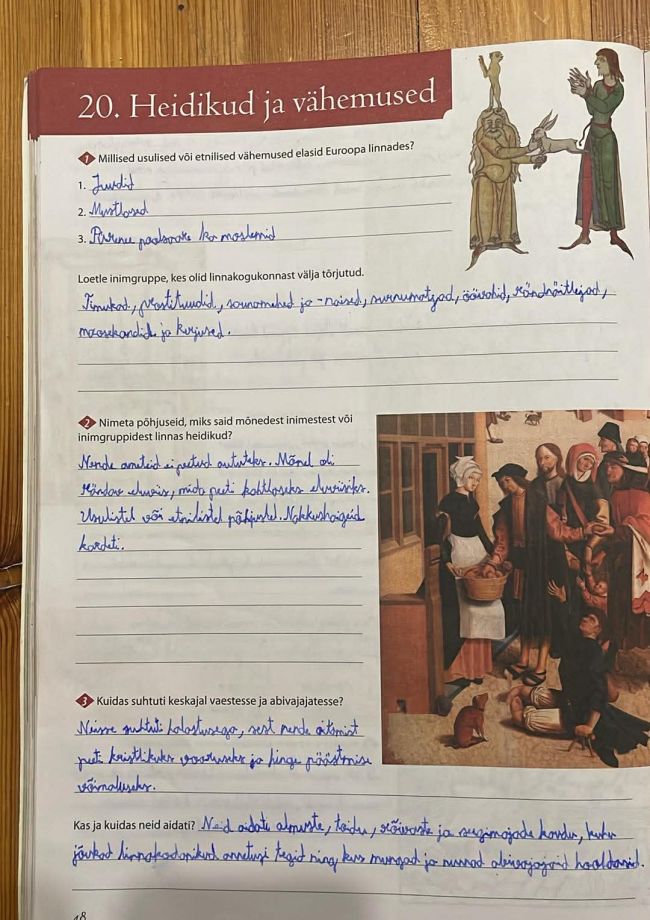 20. Heidikud ja vähemused
1 Millised usulised või etnilised vähemused elasid Euroopa linnades?
1. Juudid
2. Mustlased
3. Pürenee poolsaare ka moslemid
Loetle inimgruppe, kes olid linnakogukonnast välja tõrjutud.
Timukad, prostituudid, saunamehed ja -naised, surnumatjad, öövahid, rändnäitlejad,
moosekandid ja kerjused.
2 Nimeta põhjuseid, miks said mõnedest inimestest või
inimgruppidest linnas heidikud?
Nende ameteid ei peetud aututeks. Mõnel oli
rändav eluviis, mida peeti kahtlaseks eluviisiks.
Usulistel või etnilistel põhjustel. Nakkushaigeid
kardeti.
3 Kuidas suhtuti keskajal vaestesse ja abivajajatesse?
Neisse suhtuti halastusega, sest nende aitamist
peeti kristlikuks vooruseks ja hinge päästmise
võimaluseks.
Kas ja kuidas neid aidati? Neid aidati almuste, toidu, rõivaste ja seegimajade kaudu, kuhu
jõukad linnakodanikud annetusi tegid ning kus mungad ja nunnad abivajajaid hooldasid.
48